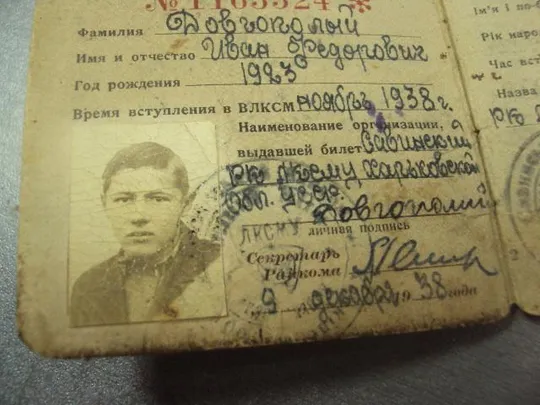 Фамилия Довгополый
Имя и отчество Иван Федорович
Год рождения 1923
Время вступления в ВЛКСМ ноябрь 1938 г.
Наименование организации,
выдавшей билет Савинский
РК ЛКСМУ Харьковской
Обл. УССР.
Довгополий
личная подпись
Секретарь
Райкома
9 декабря 1938 года
Ім'я і по-б
Рік наро
Час вст
Назва
РК Л
2
ЛКСМУ